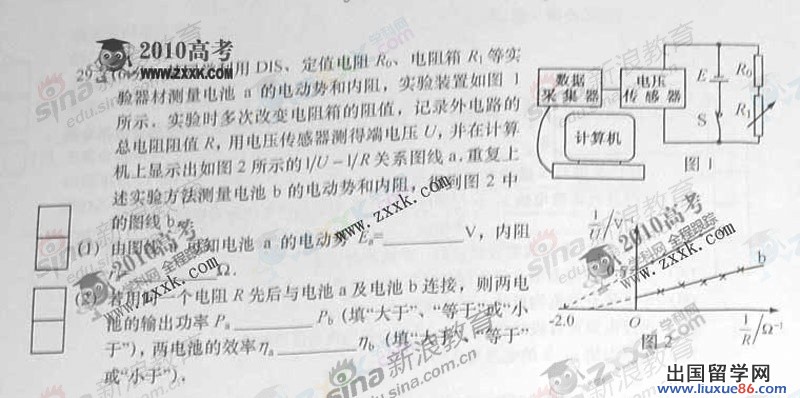 2010高考
www.zxxk.com 学科网
29. 用 DIS、定值电阻 R₀、电阻箱 R₁ 等实
验器材测量电池 a 的电动势和内阻，实验装置如图 1
所示．实验时多次改变电阻箱的阻值，记录外电路的
总电阻阻值 R，用电压传感器测得端电压 U，并在计算
机上显示出如图 2 所示的 1/U－1/R 关系图线 a．重复上
述实验方法测量电池 b 的电动势和内阻，得到图 2 中
的图线 b．
(1) 由图线 可知电池 a 的电动势 Eₐ=________ V，内阻
Ω．
(2) 若用 一个电阻 R 先后与电池 a 及电池 b 连接，则两电
池的输出功率 Pₐ________ P_b (填“大于”、“等于”或“小
于”)，两电池的效率ηₐ________η_b (填“大于”、“等于”
或“小于”)．
数据
采集器
电压
传感器
计算机
E
S
R₀
R₁
图 1
1/U /V⁻¹
b
-2.0
O
1/R /Ω⁻¹
图 2
2010高考
学科网 全程跟踪
www.zxxk.com
www.zxxk.com
2010高考
学科网 全程跟踪
www.zxxk.com
sina新浪教育
edu.sina.com.cn
出国留学网
www.liuxue86.com